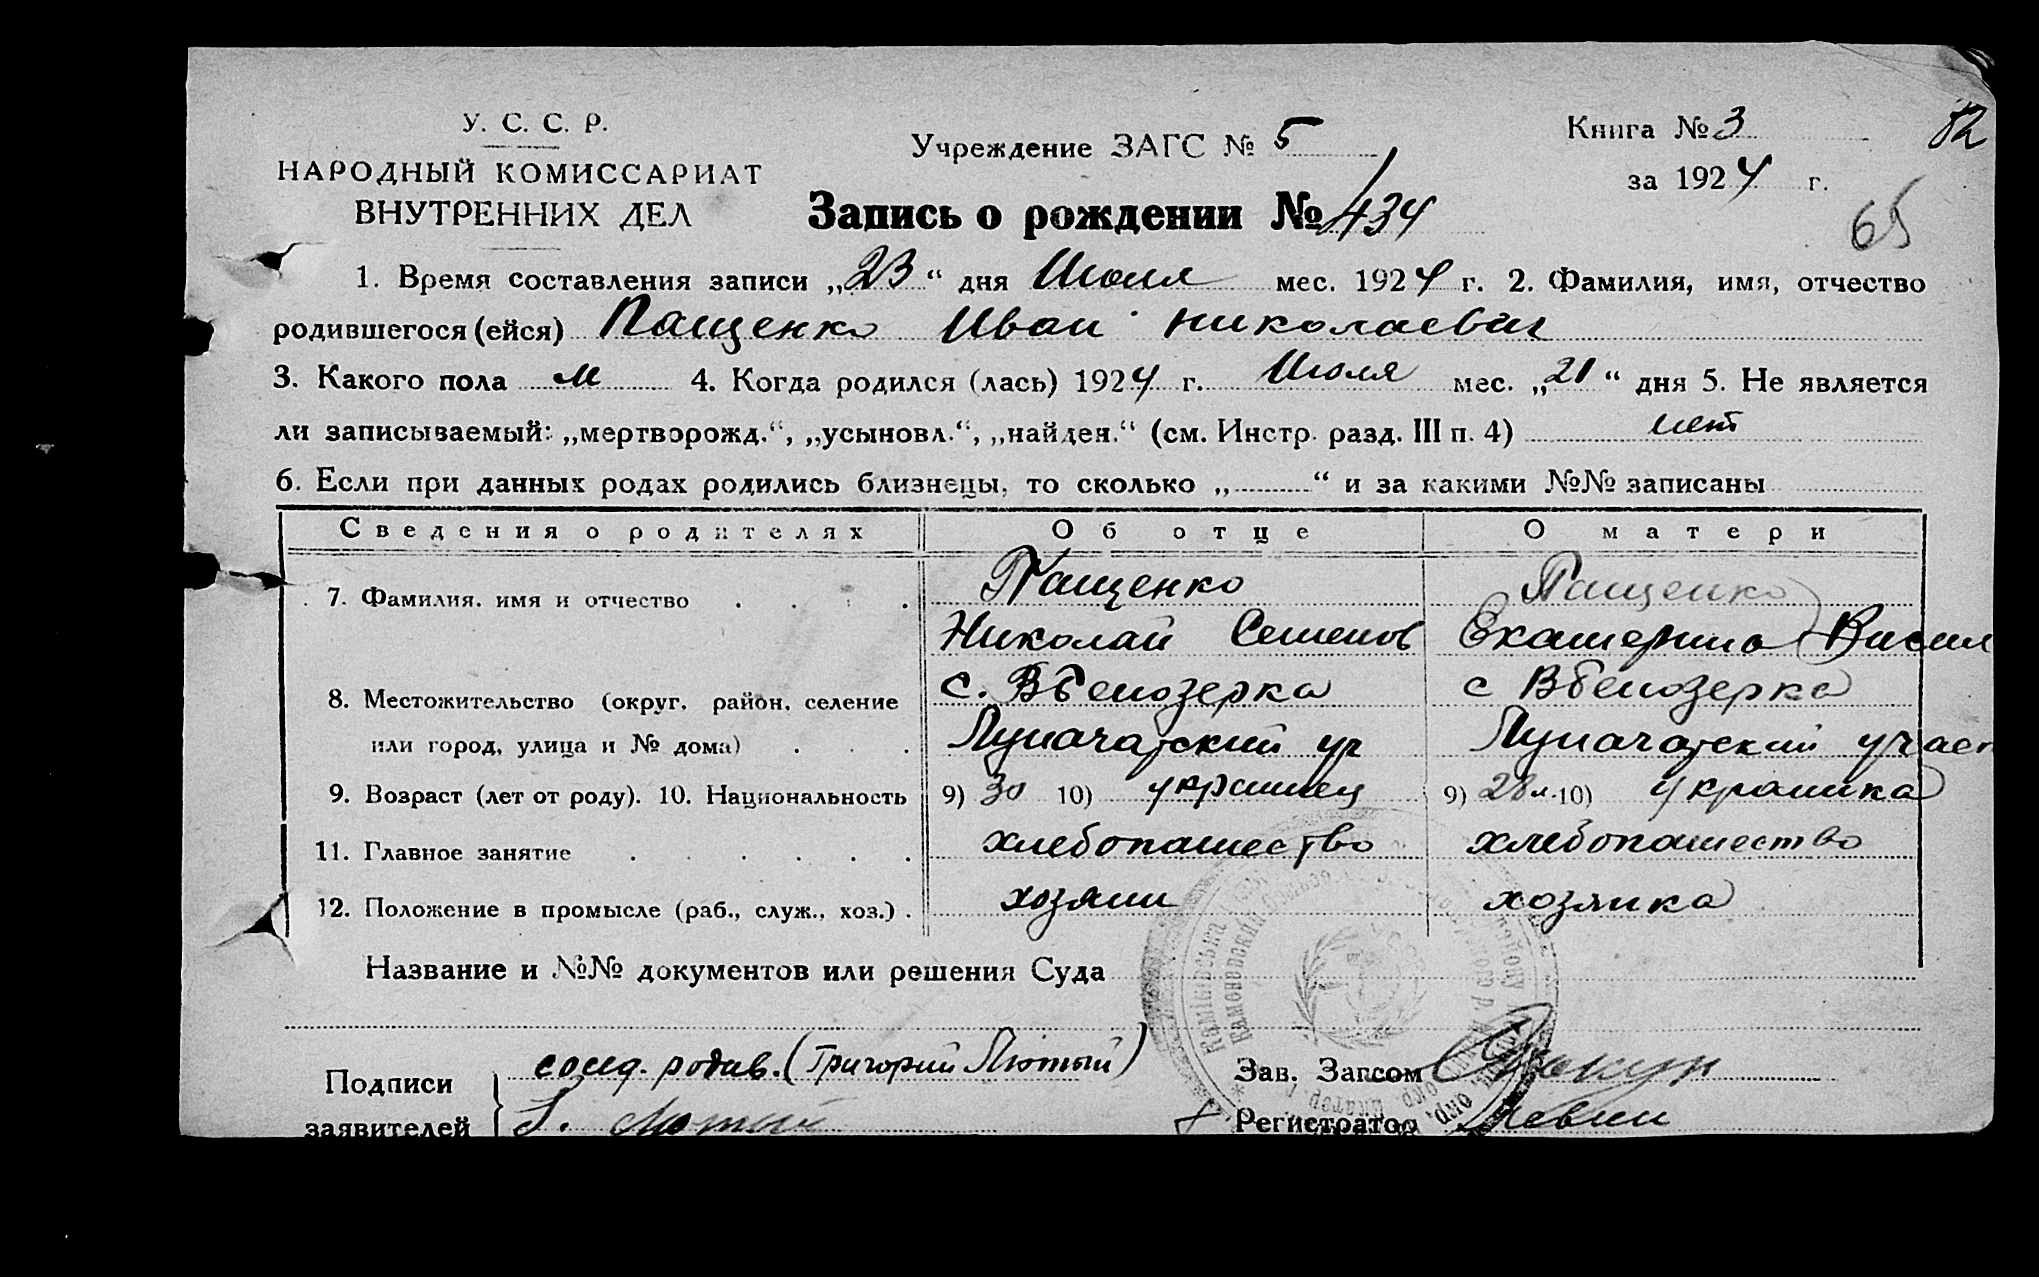 У. С. С. Р.
НАРОДНЫЙ КОМИССАРИАТ
ВНУТРЕННИХ ДЕЛ
Учреждение ЗАГС № 5
Книга № 3
82
за 1924 г.
65
Запись о рождении № 434
1. Время составления записи „23“ дня Июля мес. 1924 г. 2. Фамилия, имя, отчество
родившегося (ейся) Пащенко Иван Николаевич
3. Какого пола м 4. Когда родился (лась) 1924 г. Июля мес. „21“ дня 5. Не является
ли записываемый: „мертворожд.“, „усыновл.“, „найден.“ (см. Инстр. разд. III п. 4) нет
6. Если при данных родах родились близнецы, то сколько „ “ и за какими №№ записаны
Сведения о родителях Об отце О матери
7. Фамилия, имя и отчество Пащенко Пащенко
Николай Семенов Екатерина Васил
8. Местожительство (округ, район, селение с. Вбелозерка с Вбелозерка
или город, улица и № дома)
9. Возраст (лет от роду). 10. Национальность 9) 30 10) украинец 9) 28 л. 10) украинка
11. Главное занятие хлебопашество хлебопашество
12. Положение в промысле (раб., служ., хоз.) хозяин хозяйка
Название и №№ документов или решения Суда
Подписи
заявителей
родив. (Григорий Лютый)
Лютый
Зав. Загсом
Регистратор Левин